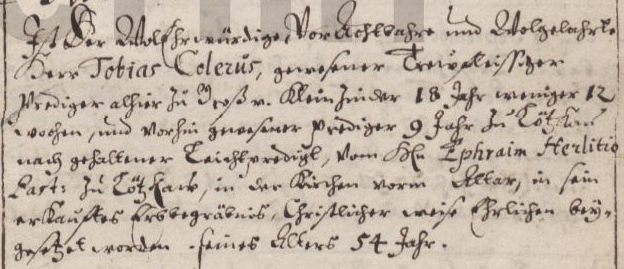 Ist Der WolEhrwürdige, VorAchtbahre und Wolgelahrte
Herr Tobias Colerus, gewesener Trewfleissiger
Prediger alhier zu Groß v. Klein 18 Jahr weniger 12
wochen, und vorhin gewesener Prediger 9 Jahr zu
nach gehaltener Leichpredigt, vom Hn Ephraim Herlitio
Past: zu in der Kirchen vorm Altar, in sein
erkauftes Erbbegräbnis, Christlicher weise Ehrlichen bey-
gesetzet worden. seines Alters 54 Jahr.